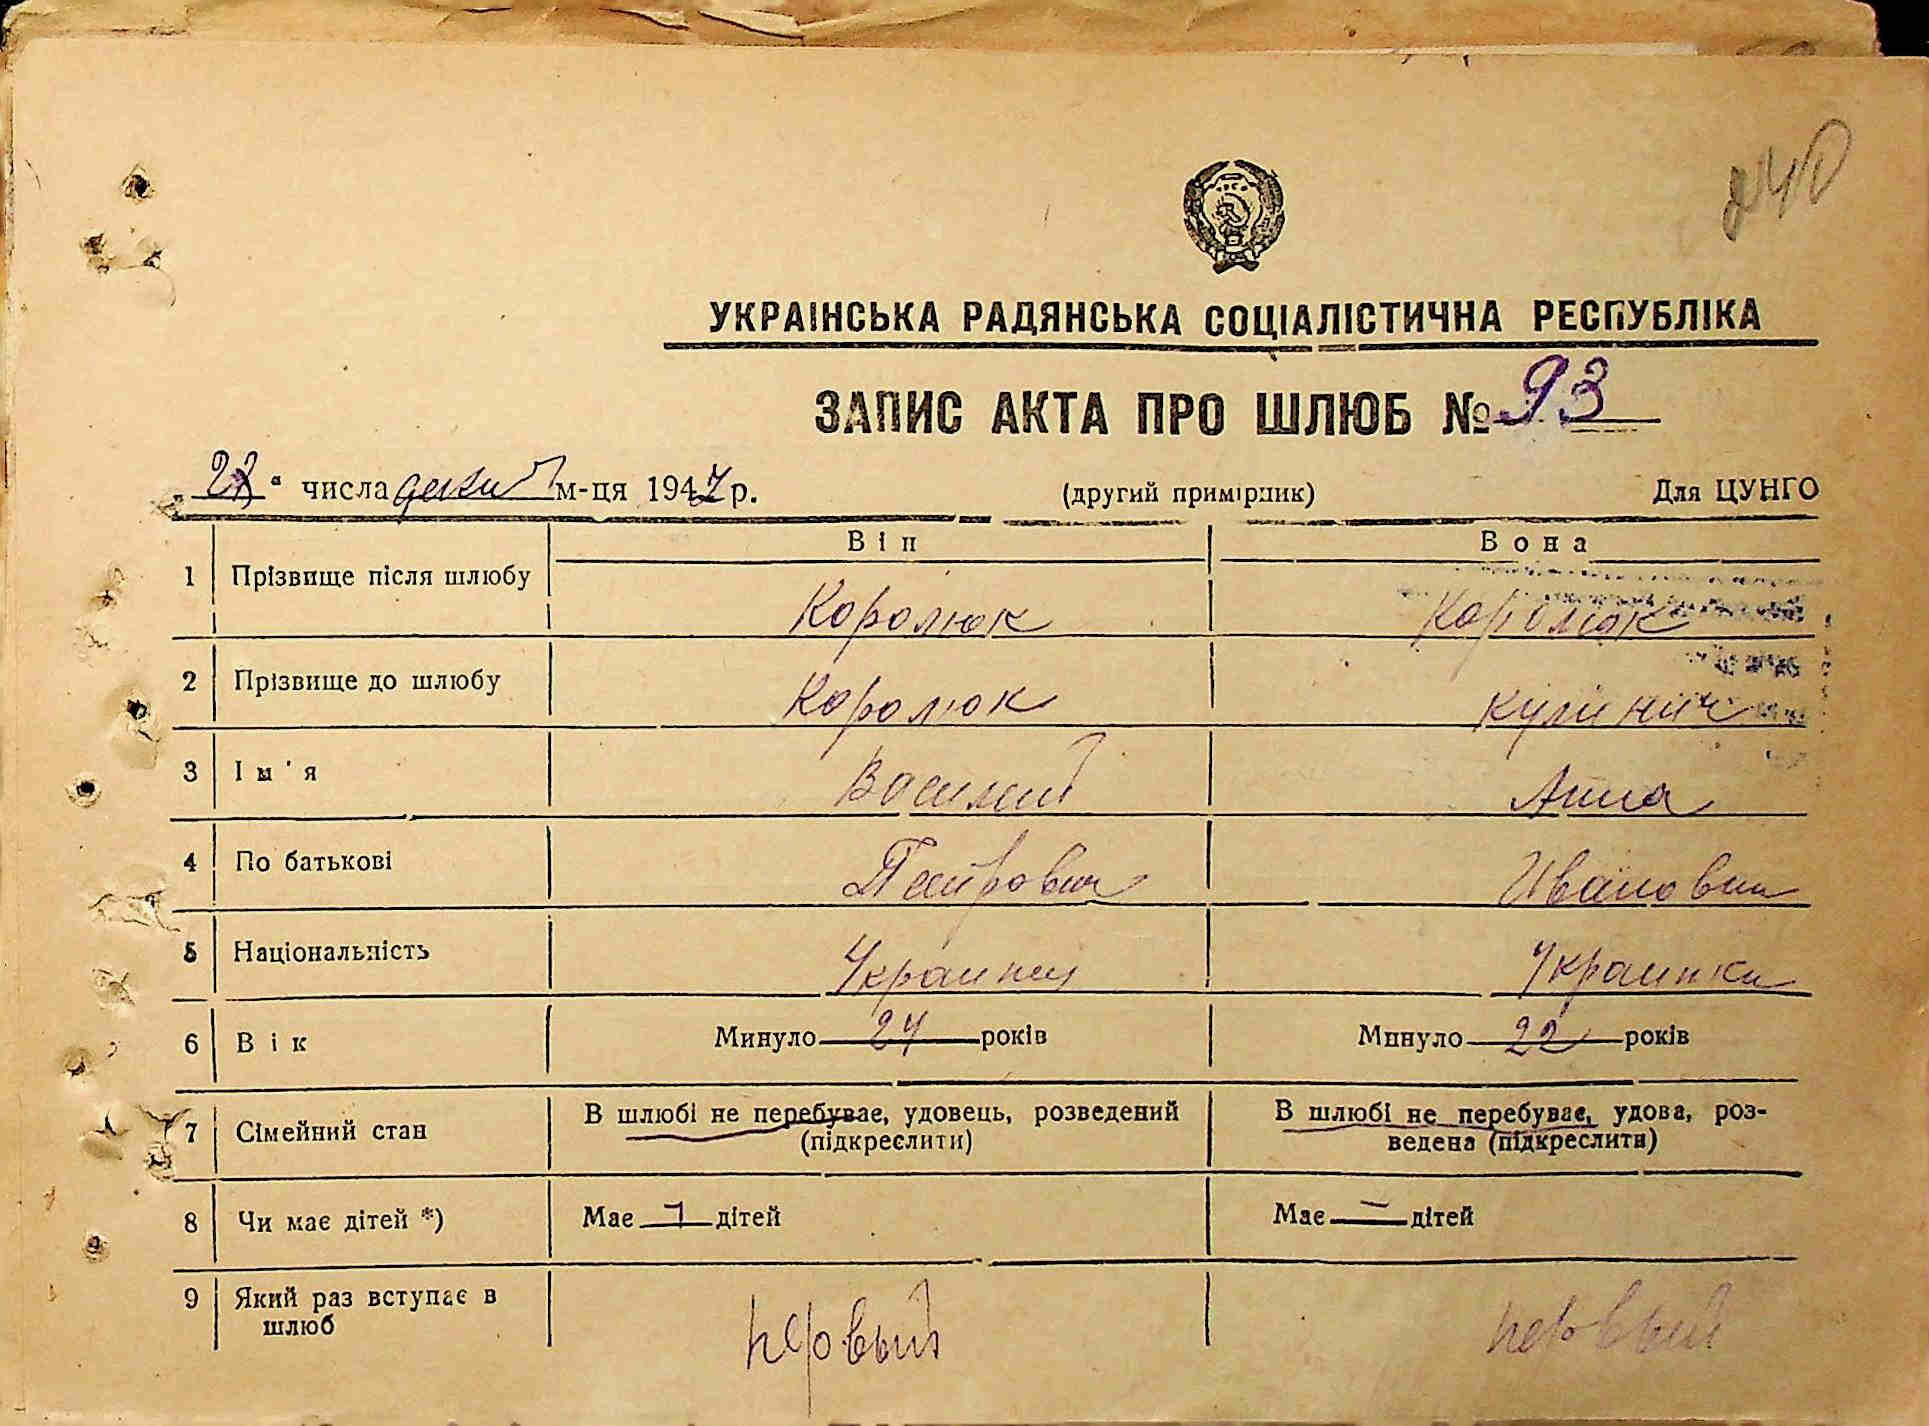 240
УКРАЇНСЬКА РАДЯНСЬКА СОЦІАЛІСТИЧНА РЕСПУБЛІКА
ЗАПИС АКТА ПРО ШЛЮБ № 93
числа м-ця 1947 р. (другий примірник) Для ЦУНГО
Він Вона
1 Прізвище після шлюбу Королюк Королюк
2 Прізвище до шлюбу Королюк Кулинич
3 Ім'я Василий Анна
4 По батькові Петрович Ивановна
5 Національність Украинец Украинка
6 Вік Минуло 24 років Минуло 22 років
7 Сімейний стан В шлюбі не перебуває, удовець, розведений (підкреслити) В шлюбі не перебуває, удова, роз-
ведена (підкреслити)
8 Чи має дітей *) Має дітей Має — дітей
9 Який раз вступає в
шлюб первый первый